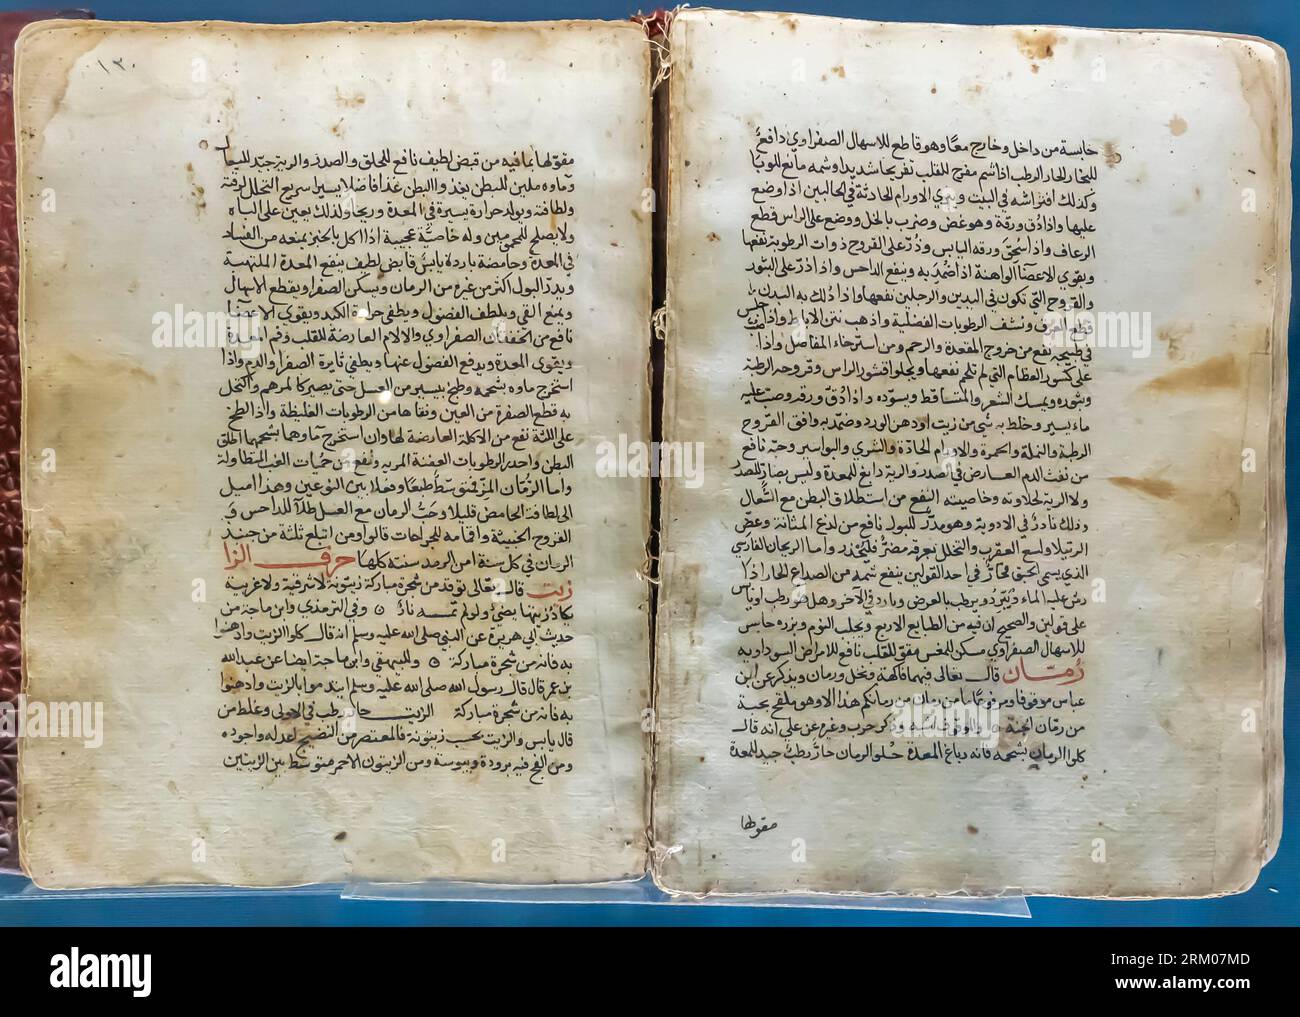 حابسة من داخل وخارج معًا وهو قاطع للاسهال الصفراوي دافع
للبخار الحار الرطب اذا شم مفرح للقلب تفريحا شديدا وشمه مانع للوبا
وكذلك افتراشه في البيت ويبري الاورام الحادثة في الحالبين اذا وضع
عليها واذا دق ورقه وهو غض وضرب بالخل ووضع على الراس قطع
الرعاف واذا سحق ورقه اليابس وذر على القروح ذوات الرطوبة نفعها
ويقوي الاعضا الواهنة اذا ضمد به وينفع الداحس واذا ذر على البثور
والقروح التي تكون في اليدين والرجلين نفعها واذا دلك به البدن
قطع العرق ونشف الرطوبات الفضلية واذهب نتن الاباط واذا جلس
في طبيخه نفع من خروج المقعدة والرحم ومن استرخاء المفاصل واذا صب
على كسور العظام التي لم تلحم نفعها ويجلوا قشور الراس وقروحه الرطبة
وبثوره ويمسك الشعر المتساقط ويسوده واذا دق ورقه وصب عليه
ماء يسير وخلط به شي من زيت او دهن الورد وضمد به وافق القروح
الرطبة والنملة والحمرة والاورام الحادة والشري والبواسير وحبه نافع
من نفث الدم العارض في الصدر والرية دابغ للمعدة وليس بضار للصدر
ولا الرية لحلاوته وخاصيته النفع من استطلاق البطن مع السعال
وذلك نادر في الادوية وهو مدر للبول نافع من لدغ المثانة وعض
الرتيلا ولسع العقرب والتخلل بعرقه مضر فليحذر واما الريحان الفارسي
الذي يسمى الحبق فحار في احد القولين ينفع شمه من الصداع الحار اذا
رش عليه الماء ويبرد ويرطب بالعرض وبارد في الآخر وهل هو رطب او يابس
على قولين والصحيح ان فيه من الطبايع الاربع ويجلب النوم وبزره حابس
للاسهال الصفراوي مسكن للمغص مقو للقلب نافع للامراض السوداويه
رمان قال تعالى فيهما فاكهة ونخل ورمان ويذكر عن ابن
عباس موقوفا ومرفوعا ما من رمان من رمانكم هذا الا وهو ملقح بحبة
من رمان الجنة والوقوف اشبه وذكر حرب وغيره عن علي انه قال
كلوا الرمان بشحمه فانه دباغ المعدة حلو الرمان حار رطب جيد للمعدة
مقو لها
١٢٠
مقو لها بما فيه من قبض لطيف نافع للحلق والصدر والرية جيد للسعال
وماوه ملين للبطن يغذو البطن غذا فاضلا يسيرا سريع التحلل لرقته
ولطافته ويولد حرارة يسيرة في المعدة وريحا ولذلك يعين على الباه
ولا يصلح للمحمومين وله خاصية عجيبة اذا اكل بالخبز يمنعه من الفساد
في المعدة وحامضه بارد يابس قابض لطيف ينفع المعدة الملتهبة
ويدر البول اكثر من غيره من الرمان ويسكن الصفرا ويقطع الاسهال
ويمنع القي ويلطف الفضول ويطفي حرارة الكبد ويقوي الاعضا
نافع من الخفقان الصفراوي والالام العارضة للقلب وفم المعدة
ويقوي المعدة ويدفع الفضول عنها ويطفي نايرة الصفرا والدم واذا
استخرج ماوه بشحمه وطبخ بيسير من العسل حتى يصير كالمرهم واكتحل
به قطع الصفرة من العين ونقاها من الرطوبات الغليظة واذا لطخ
على اللثة نفع من الاكلة العارضة لها وان استخرج ماوهما بشحمهما اطلق
البطن واحدر الرطوبات العفنة المريه ونفع من حميات الغب المتطاولة
واما الرمان المز فمتوسط طبعا وفعلا بين النوعين وهذا اميل
الى لطافة الحامض قليلا وحب الرمان مع العسل طلاء للداحس و
القروح الخبيثة واقماعه للجراحات قالوا ومن ابتلع ثلثة من جنبذ
الرمان في كل سنة امن الرمد سنته كلها حرف الزا
زيت قال تعالى يوقد من شجرة مباركة زيتونة لا شرقية ولا غربية
يكاد زيتها يضيء ولو لم تمسسه نار وفي الترمذي وابن ماجة من
حديث ابي هريرة عن النبي صلى الله عليه وسلم انه قال كلوا الزيت وادهنوا
به فانه من شجرة مباركة وللبيهقي وابن ماجة ايضا عن عبد الله
بن عمر قال قال رسول الله صلى الله عليه وسلم ايتدموا بالزيت وادهنوا
به فانه من شجرة مباركة الزيت حار رطب في الاولى وغلط من
قال يابس والزيت بحسب زيتونه فالمعتصر من النضيج اعدله واجوده
ومن الفج فيه برودة ويبوسة ومن الزيتون الاحمر متوسط بين الزيتين
alamy
Image ID: 2RM07MD
www.alamy.com